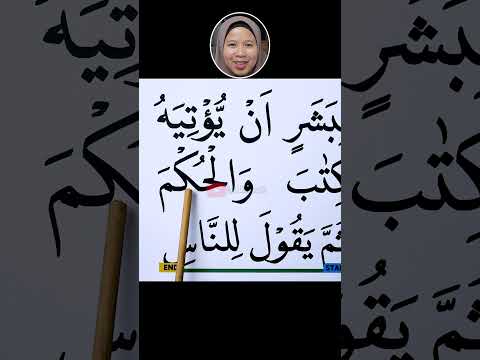 لِبَشَرٍ اَنْ يُّؤْتِيَهُ
كِتٰبَ وَالْحُكْمَ
ثُمَّ يَقُوْلَ لِلنَّاسِ
END